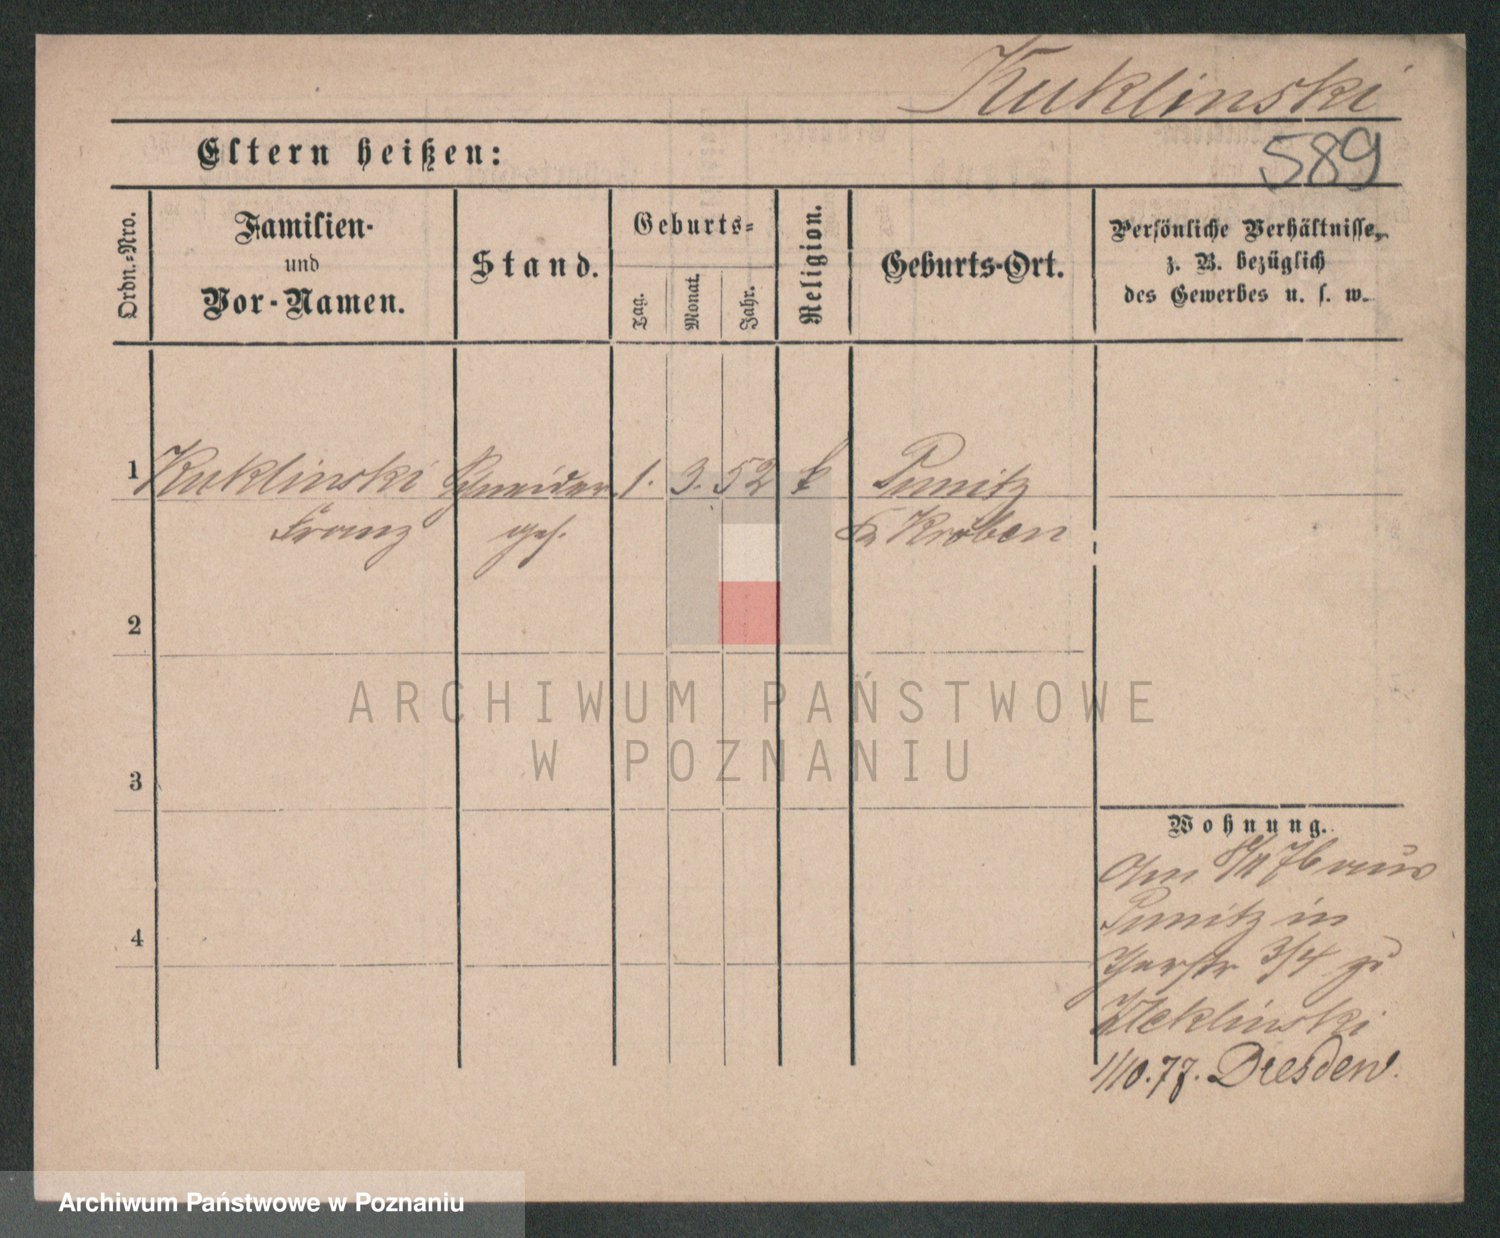 Kuklinski
Eltern heißen:
589
Ordn.-Nro.
Familien-
und
Vor-Namen.
Stand.
Geburts-
Tag.
Monat.
Jahr.
Religion.
Geburts-Ort.
Persönliche Verhältnisse,
z. B. bezüglich
des Gewerbes u. s. w.
1 Kuklinski Schneider 1. 3. 52 k Punitz
Franz ges. Kröben
2
ARCHIWUM PAŃSTWOWE
W POZNANIU
3
Wohnung.
76 aus
Punitz in
3/4 zu
4
Kuklinski
1/10.77. Dresden.
Archiwum Państwowe w Poznaniu